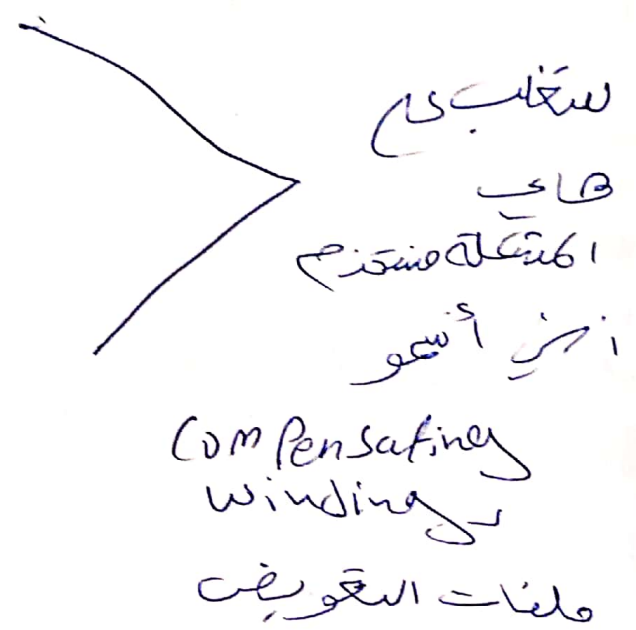 للتغلب على
هاي
المشكلة منستخدم
إشي أسمو
Compensating
windings
ملفات التعويض